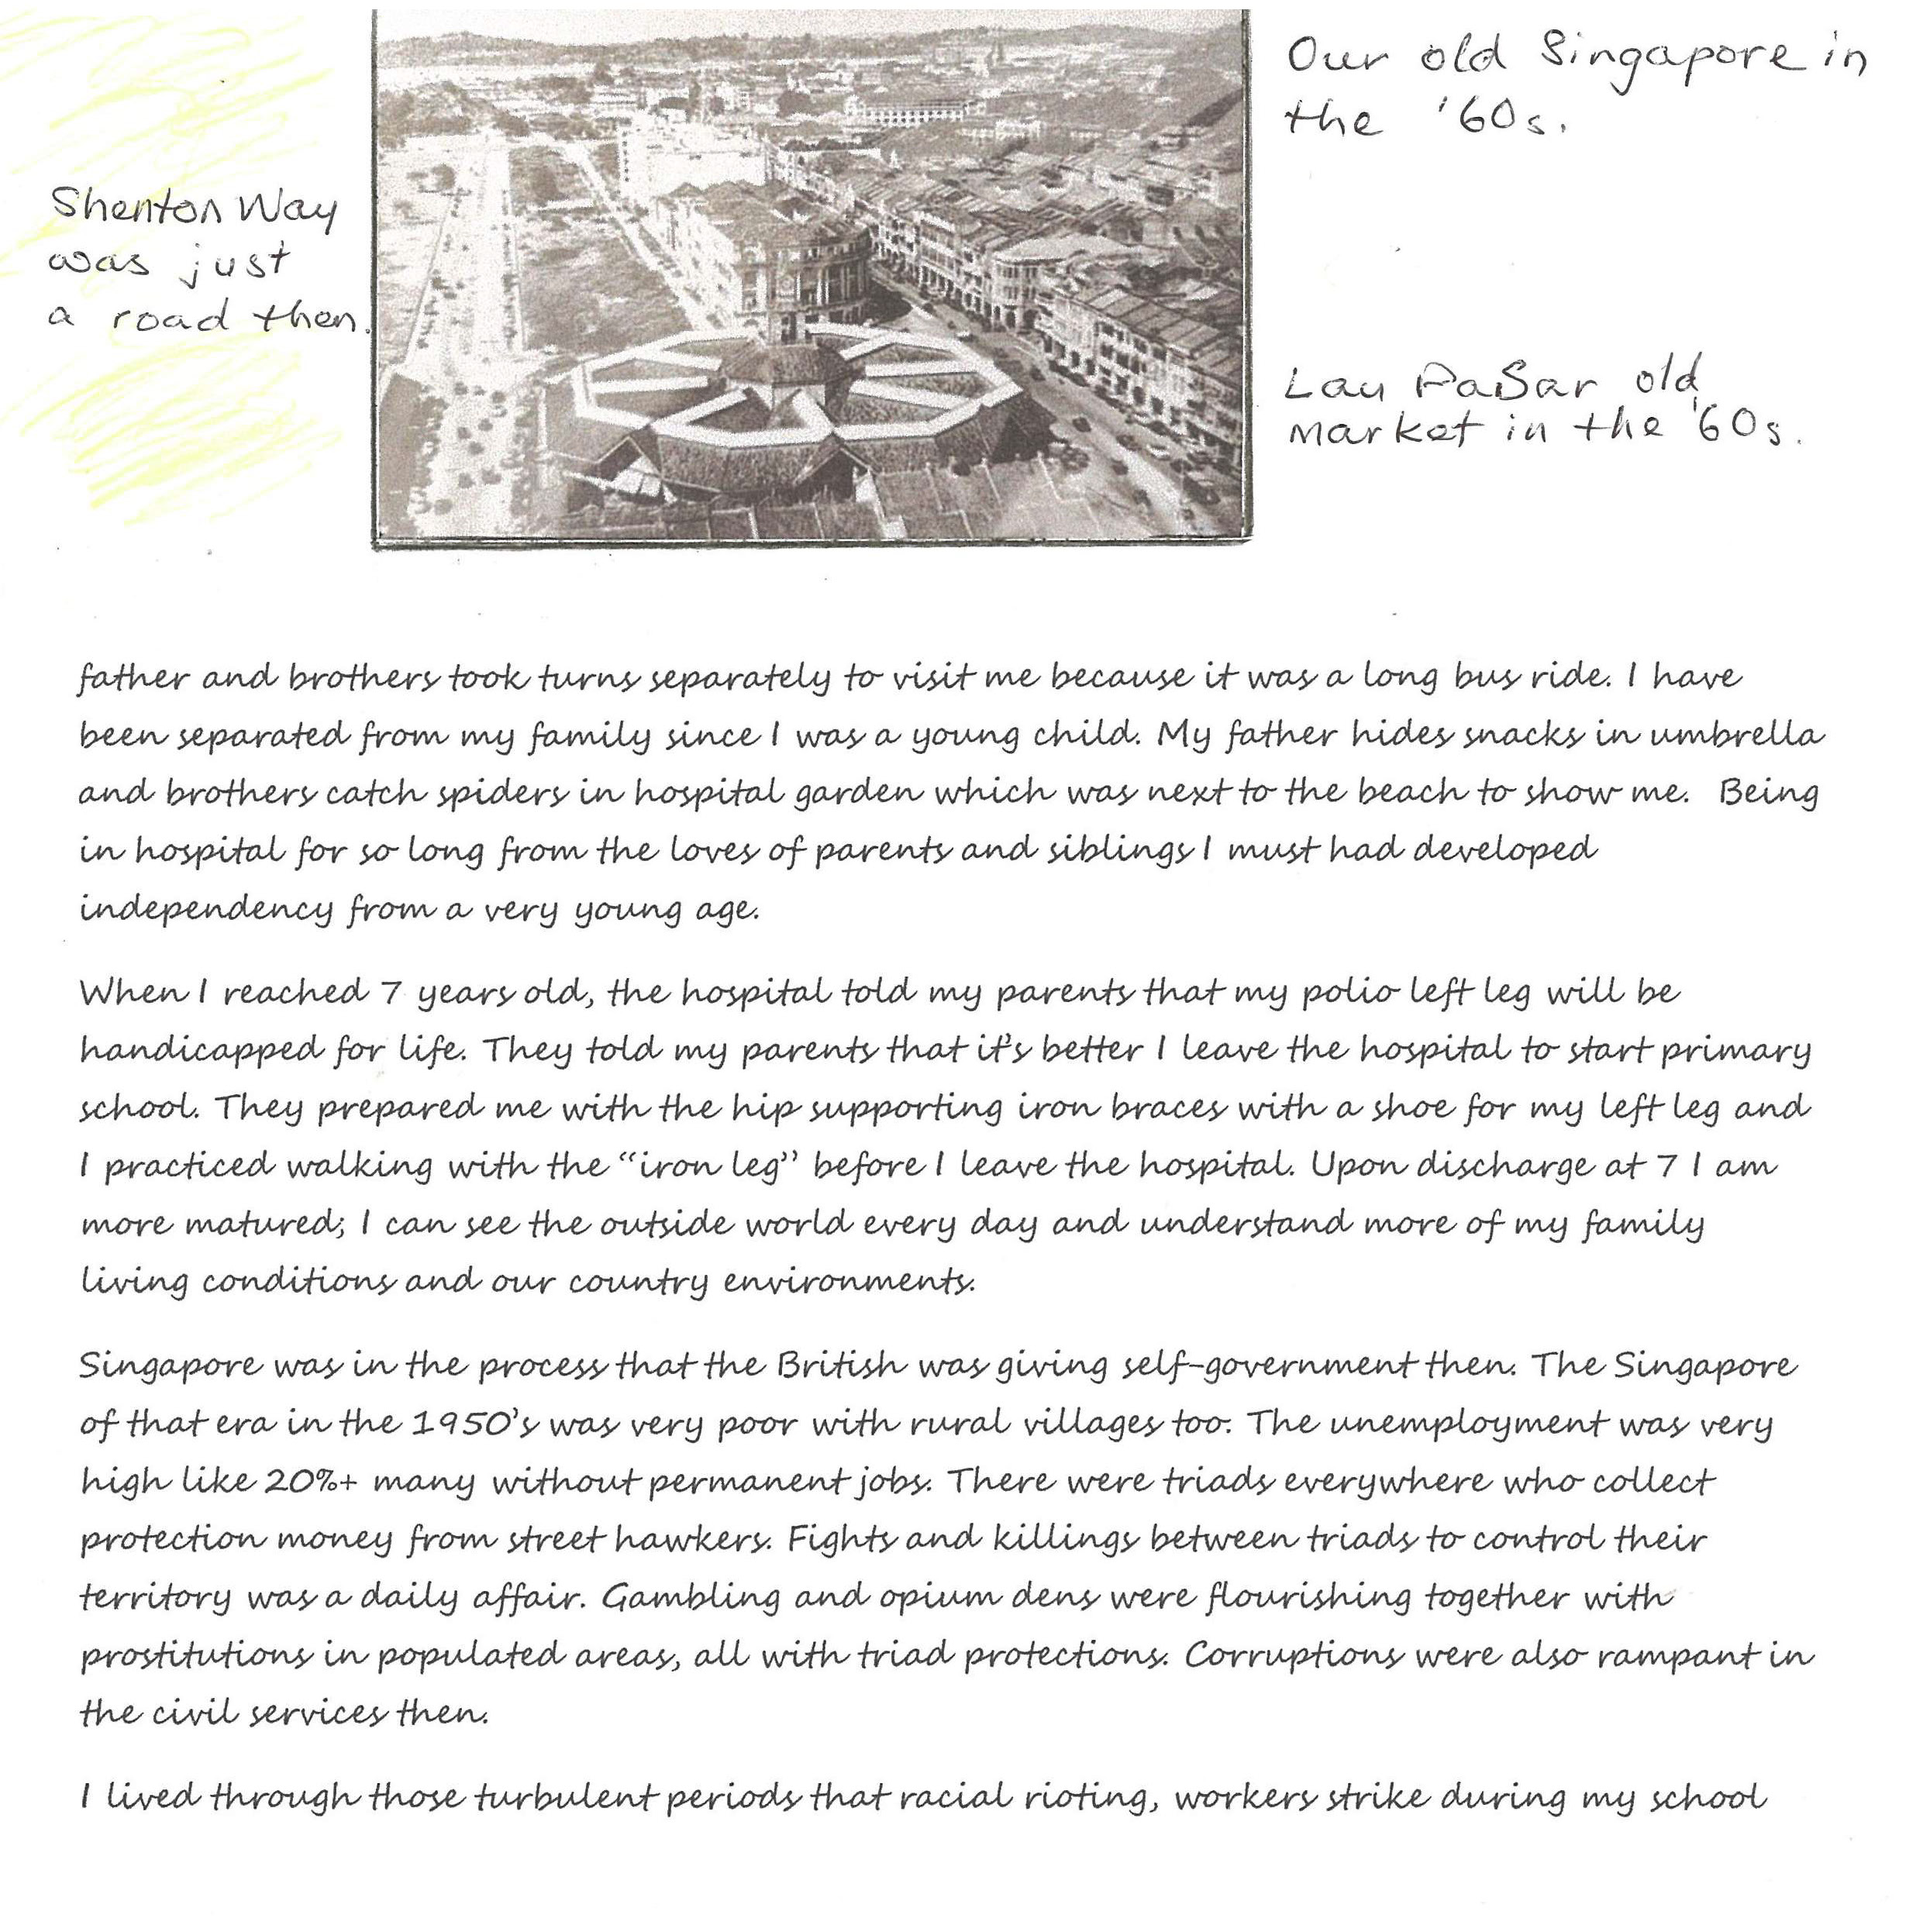 Our old Singapore in
the '60s.
Shenton Way
was just
a road then.
Lau PaSar old
market in the '60s.
father and brothers took turns separately to visit me because it was a long bus ride. I have
been separated from my family since I was a young child. My father hides snacks in umbrella
and brothers catch spiders in hospital garden which was next to the beach to show me. Being
in hospital for so long from the loves of parents and siblings I must had developed
independency from a very young age.
When I reached 7 years old, the hospital told my parents that my polio left leg will be
handicapped for life. They told my parents that it's better I leave the hospital to start primary
school. They prepared me with the hip supporting iron braces with a shoe for my left leg and
I practiced walking with the “iron leg” before I leave the hospital. Upon discharge at 7 I am
more matured; I can see the outside world every day and understand more of my family
living conditions and our country environments.
Singapore was in the process that the British was giving self-government then. The Singapore
of that era in the 1950's was very poor with rural villages too. The unemployment was very
high like 20%+ many without permanent jobs. There were triads everywhere who collect
protection money from street hawkers. Fights and killings between triads to control their
territory was a daily affair. Gambling and opium dens were flourishing together with
prostitutions in populated areas, all with triad protections. Corruptions were also rampant in
the civil services then.
I lived through those turbulent periods that racial rioting, workers strike during my school